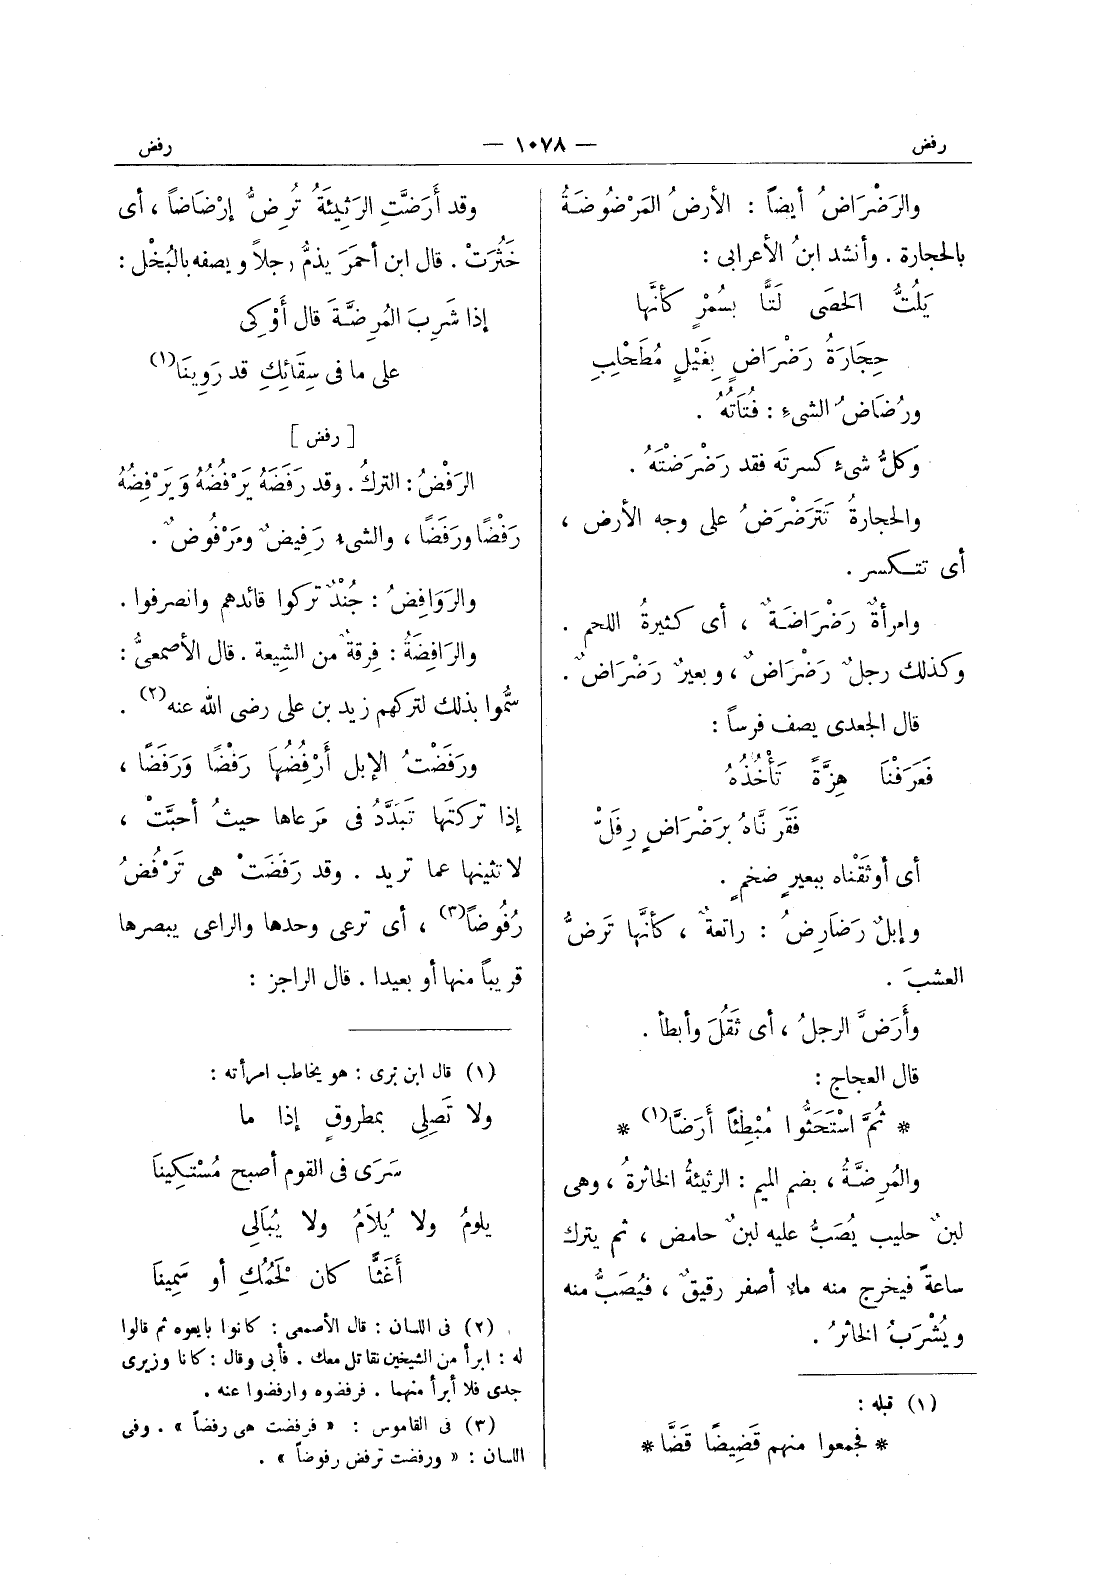 رفض — ١٠٧٨ — رفض
والرَضْرَاضُ أيضاً : الأرضُ المَرْضُوضَةُ
بالحجارة . وأنشد ابنُ الأعرابى :
يَلُتُّ الحَصَى لَتًّا بِسُمْرٍ كأنَّها
حِجَارَةُ رَضْرَاضٍ بِغَيْلٍ مُطَحْلِبِ
ورُضَاضُ الشىءِ : فُتَاتُهُ .
وكلُّ شىءٍ كسرتَه فقد رَضْرَضْتَهُ .
والحجارةُ تَتَرَضْرَضُ على وجه الأرض ،
أى تتكسر .
وامرأةٌ رَضْرَاضَةٌ ، أى كثيرةُ اللحم .
وكذلك رجلٌ رَضْرَاضٌ ، وبعيرٌ رَضْرَاضٌ .
قال الجعدى يصف فرساً :
فَعَرَفْنَا هِزَّةً تَأْخُذُهُ
فَقَرَنَّاهُ بِرَضْرَاضٍ رِفَلّْ
أى أوثَقْناه ببعيرٍ ضخمٍ .
وإبلٌ رَضَارِضُ : راتعةٌ ، كأنَّها تَرضُّ
العشبَ .
وأَرَضَّ الرجلُ ، أى ثَقُلَ وأبطأ .
قال العجاج :
* ثُمَّ اسْتَحَثُّوا مُبْطِئًا أَرَضَّا(١) *
والمُرِضَّةُ ، بضم الميم : الرثيئةُ الخاثرةُ ، وهى
لبنٌ حليب يُصَبُّ عليه لبنٌ حامض ، ثم يترك
ساعةً فيخرج منه ماءٌ أصفر رقيقٌ ، فيُصَبُّ منه
ويُشْرَبُ الخاثرُ .
(١) قبله :
* فجمعوا منهم قَضِيضًا قَضَّا *
وقد أَرَضَّتِ الرَثِيئَةُ تُرِضُّ إرْضَاضاً ، أى
خَثُرَتْ . قال ابن أحمَرَ يذمُّ رجلاً ويصفه بالبُخْل :
إذا شَرِبَ المُرِضَّةَ قال أَوْكِى
على ما فى سِقَائِكِ قد رَوِينَا(١)
[ رفض ]
الرَفْضُ : التركُ . وقد رَفَضَهُ يَرْفُضُهُ وَيَرْفِضُهُ
رَفْضًا ورَفَضًا ، والشىء رَفِيضٌ ومَرْفُوضٌ .
والرَوَافِضُ : جُنْدٌ تركوا قائدهم وانصرفوا .
والرَافِضَةُ : فِرقةٌ من الشِيعة . قال الأصمعىُّ :
سُمُّوا بذلك لتركهم زيد بن على رضى الله عنه(٢) .
ورَفَضْتُ الإبل أَرْفُضُهَا رَفْضًا وَرَفَضًا ،
إذا تركتَها تَبَدَّدُ فى مَرعاها حيثُ أحبَّتْ ،
لا تثنيها عما تريد . وقد رَفَضَتْ هى تَرْفُضُ
رُفُوضاً(٣) ، أى ترعى وحدها والراعى يبصرها
قريباً منها أو بعيدا . قال الراجز :
(١) قال ابن برى : هو يخاطب امرأته :
ولا تَصِلِى بمطروقٍ إذا ما
سَرَى فى القوم أصبح مُسْتَكِينَا
يلومُ ولا يُلاَمُ ولا يُبَالِى
أَغَثًّا كان لَحْمُكِ أو سَمِينَا
(٢) فى اللسان : قال الأصمعى : كانوا بايعوه ثم قالوا
له : ابرأ من الشيخين نقاتل معك . فأبى وقال : كانا وزيرى
جدى فلا أبرأ منهما . فرفضوه وارفضوا عنه .
(٣) فى القاموس : « فرفضت هى رفضاً » . وفى
اللسان : « ورفضت ترفض رفوضاً » .